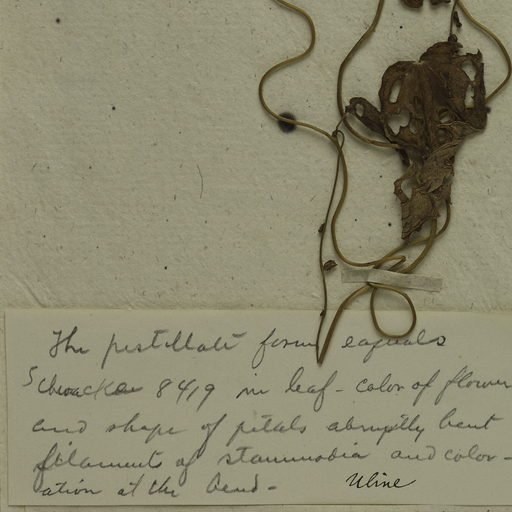 The pistillate form equals
Schwacke 8419 in leaf - color of flower
and shape of petals abruptly bent
filaments of staminodia and color-
ation at the bend -
Uline